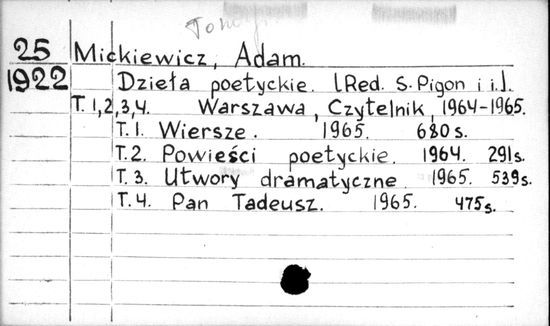 25 Mickiewicz, Adam.
1922 Dzieła poetyckie. [Red. S. Pigon i i.].
T. 1,2,3,4. Warszawa, Czytelnik, 1964-1965.
T. 1. Wiersze. 1965. 680 s.
T. 2. Powieści poetyckie. 1964. 291 s.
T. 3. Utwory dramatyczne 1965. 539 s.
T. 4. Pan Tadeusz. 1965. 475 s.